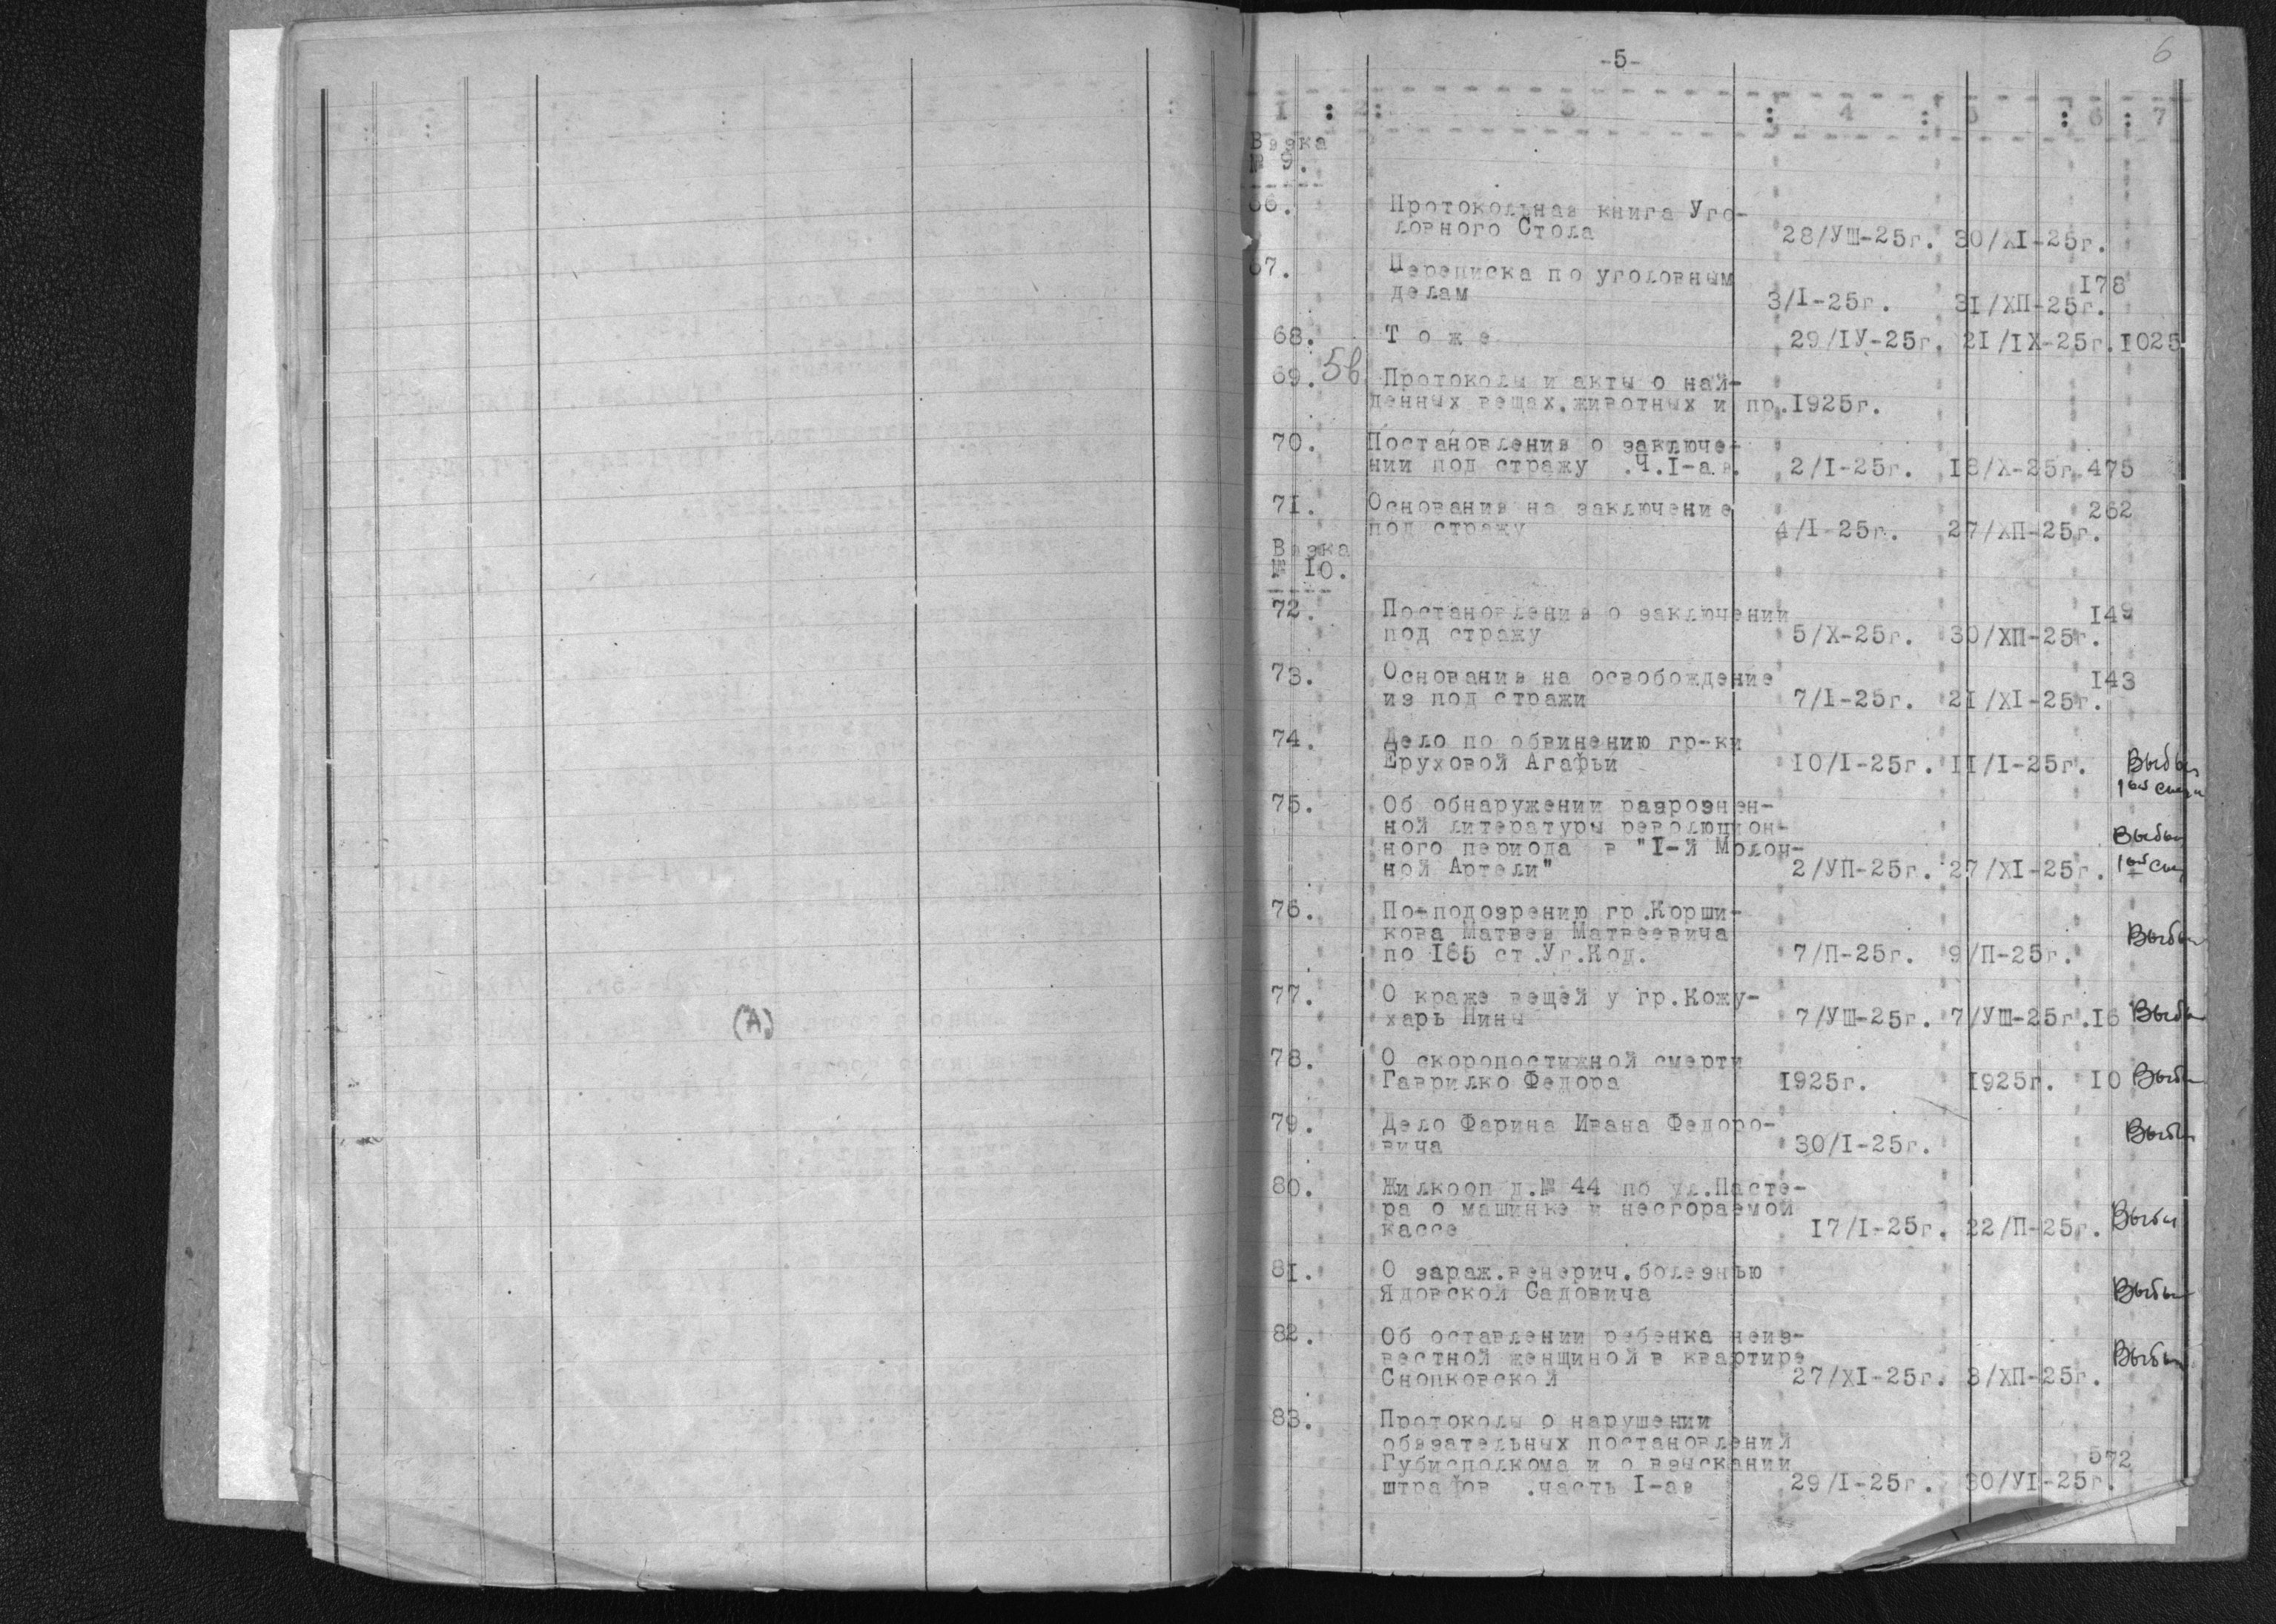 6
-5-
I : 2: 3 : 4 : 5 : 6 : 7
Вязка
№ 9.
66. Протокольная книга Уго-
ловного Стола 28/УШ-25г. 30/XI-25г.
67. Переписка по уголовным 178
делам 3/I-25г. 31/ХП-25г.
68. Т о ж е 29/IУ-25г. 21/IX-25г. 1025
69. 5в Протоколы и акты о най-
денных вещах,животных и пр.1925г.
70. Постановления о заключе-
нии под стражу .Ч.I-ая. 2/I-25г. 18/X-25г. 475
71. Основания на заключение 262
под стражу 4/I-25г. 27/ХП-25г.
Вязка
№ 10.
72. Постановления о заключении 149
под стражу 5/X-25г. 30/ХП-25г.
73. Основания на освобождение 143
из под стражи 7/I-25г. 21/XI-25г.
74. Дело по обвинению гр-ки
Еруховой Агафьи 10/I-25г. 11/I-25г. Выбы
75. Об обнаружении разрознен-
ной литературы революцион-
ного периода в "I-й Молоч- Выбы
ной Артели" 2/УП-25г. 27/XI-25г.
76. По-подозрению гр.Корши-
кова Матвея Матвеевича Выбы
по 185 ст.Уг.Код. 7/П-25г. 9/П-25г.
77. О краже вещей у гр.Кожу-
харь Нины 7/УШ-25г. 7/УШ-25г. 16 Выбы
78. О скоропостижной смерти
Гаврилко Федора 1925г. 1925г. 10 Выбы
79. Дело Фарина Ивана Федоро- Выбы
вича 30/I-25г.
80. Жилкооп д.№ 44 по ул.Пасте-
ра о машинке и несгораемой
кассе 17/I-25г. 22/П-25г. Выбы
81. О зараж.венерич.болезнью
Ядовской Садовича Выбы
82. Об оставлении ребенка неиз-
вестной женщиной в квартире Выбы
Снопковской 27/XI-25г. 3/ХП-25г.
83. Протоколы о нарушении
обязательных постановлений
Губисполкома и о взыскании 572
штрафов .часть I-ая 29/I-25г. 30/УI-25г.
(А)